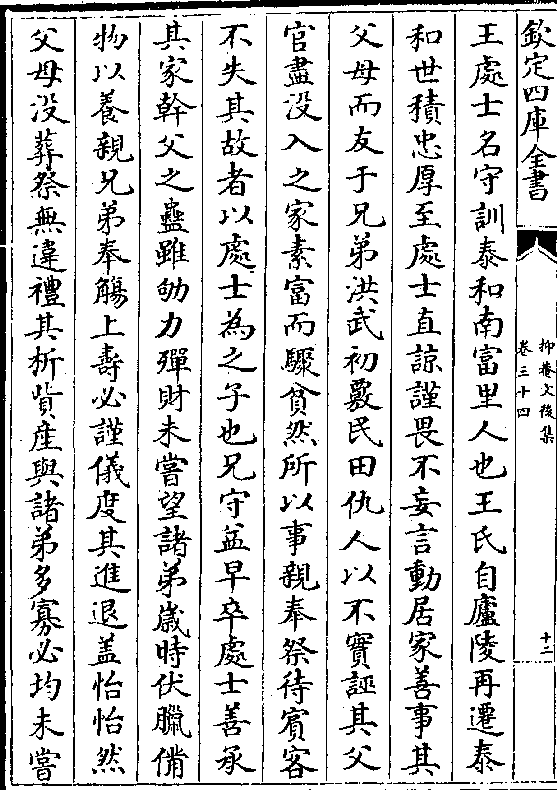 欽定四庫全書
抑菴文後集
卷三十四
十二
王處士名守訓泰和南富里人也王氏自廬陵再遷泰
和世積忠厚至處士直諒謹畏不妄言動居家善事其
父母而友于兄弟洪武初覈民田仇人以不實誣其父
官盡没入之家素富而驟貧然所以事親奉祭待賓客
不失其故者以處士為之子也兄守盆早卒處士善承
其家幹父之蠱雖劬力殫財未嘗望諸弟嵗時伏臘備
物以養親兄弟奉觴上壽必謹儀度其進退盖怡怡然
父母没葬祭無違禮其析貲產與諸弟多寡必均未嘗